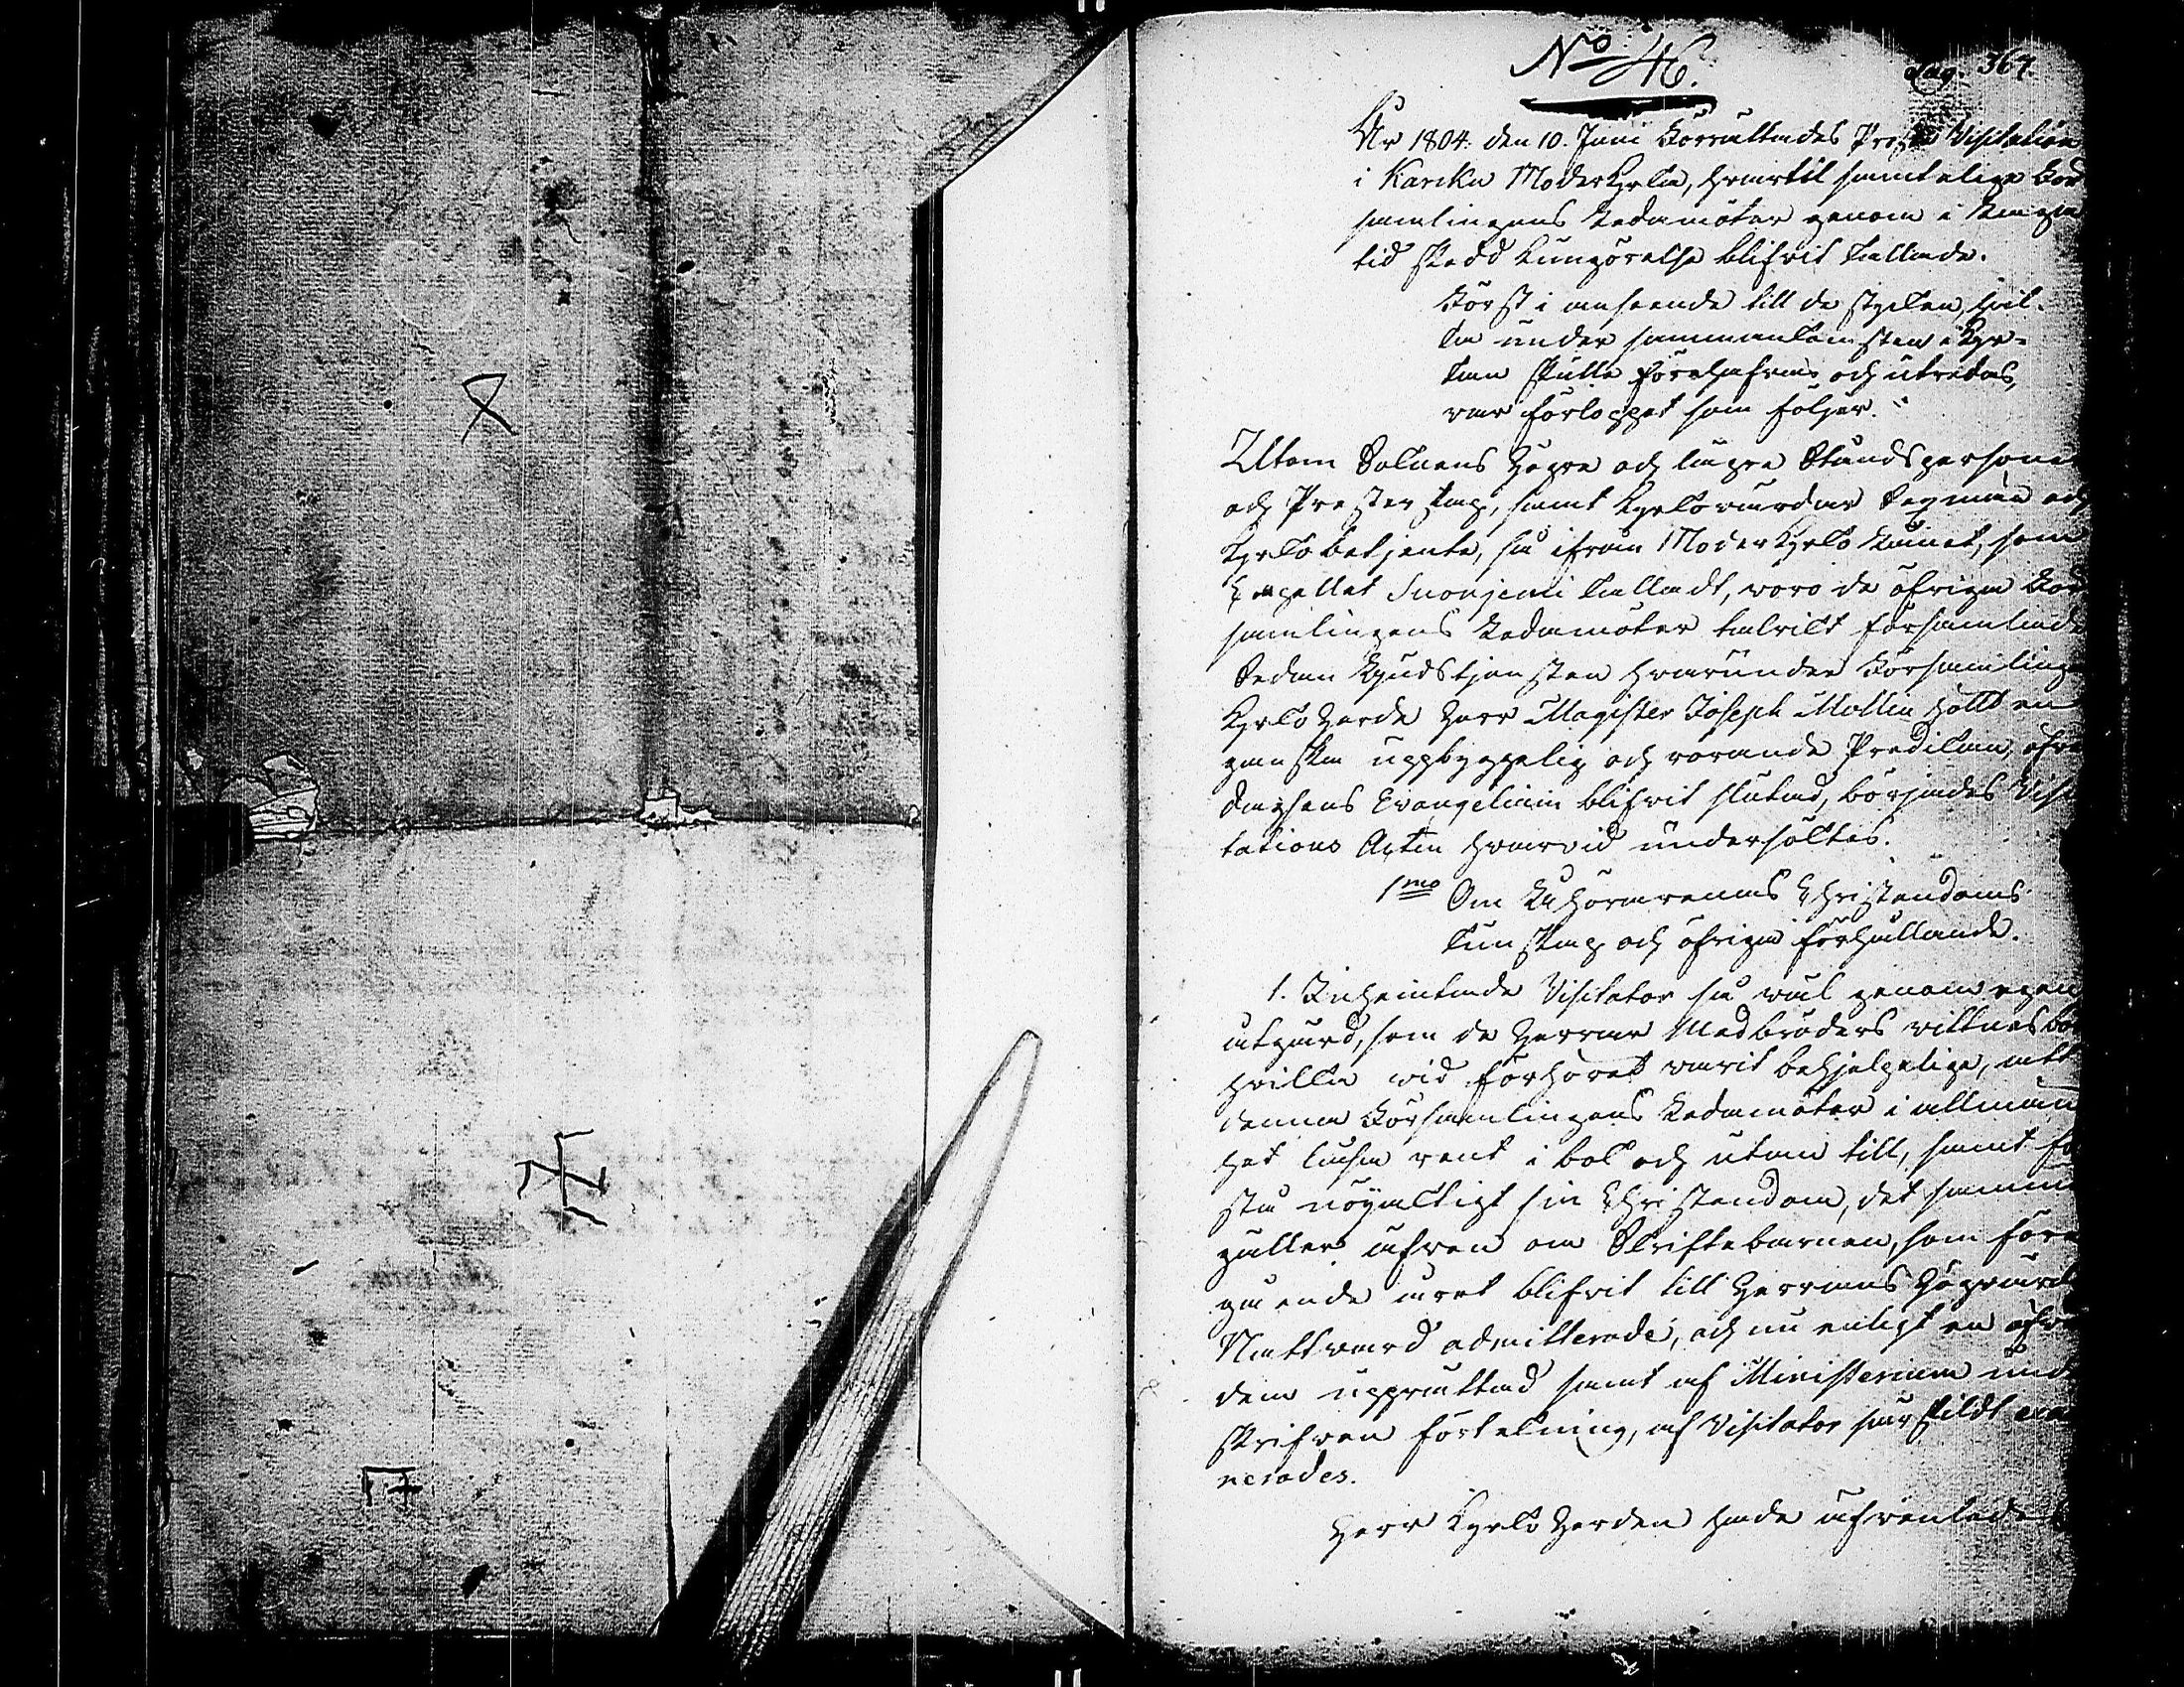 No 46.
pag. 364.
År 1804. den 10. Junii Förrättades Prosts Visitation
i Karcku Moderkyrka, hwartil samtelige För
samlingens Ledamöter genom i laga
tid skedd kungörelse blifvit kallade.
Först i anseende till de stycken, hvil-
ka under sammankomsten i Kyr-
kan skulle förehafvas och utredas,
var förloppet som följer.
Utom Soknens högre och lägre Ståndspersoner
och Presterskap, samt Kyrkovärdar Sexmän och
Kyrkobetjente, så ifrån Moderkyrko Lainet, som
Capellet Suonjemi kalladt, woro de öfrige För
samlingens Ledamöter talrikt församlade
Sedan Gudstjensten hvarunder Församlings
Kyrko herde Herr Magister Joseph Mollin höllt en
ganska uppbyggelig och rörande Predikan, öfver
dagsens Evangelium blifvit slutad, börjades Visi
tations Acten hvarvid underhöltes.
1mo Om Åhörarenas Christendoms
kunskap och öfriga förhållande.
1. Inhämtade Visitator så wäl genom egen
åtgärd, som de Herrar Medbröders vittnesbö
hvilka wid förhöret varit behjelpelige, att
denna Församlingens Ledamöter i allmän
het läsa rent i bok och utan till, samt för
stå nöjaktigt sin Christendom, det samma
gäller äfven om Skriftebarnen, som före
gående året blifvit till Herrans Högvärd
Nattvard admitterade, och nu enligt en öfver
dem upprättad samt af Ministerium und
skrifven förtekning, af Visitator särskildt exa
nerades.
Herr Kyrko Herden hade äfvenledes